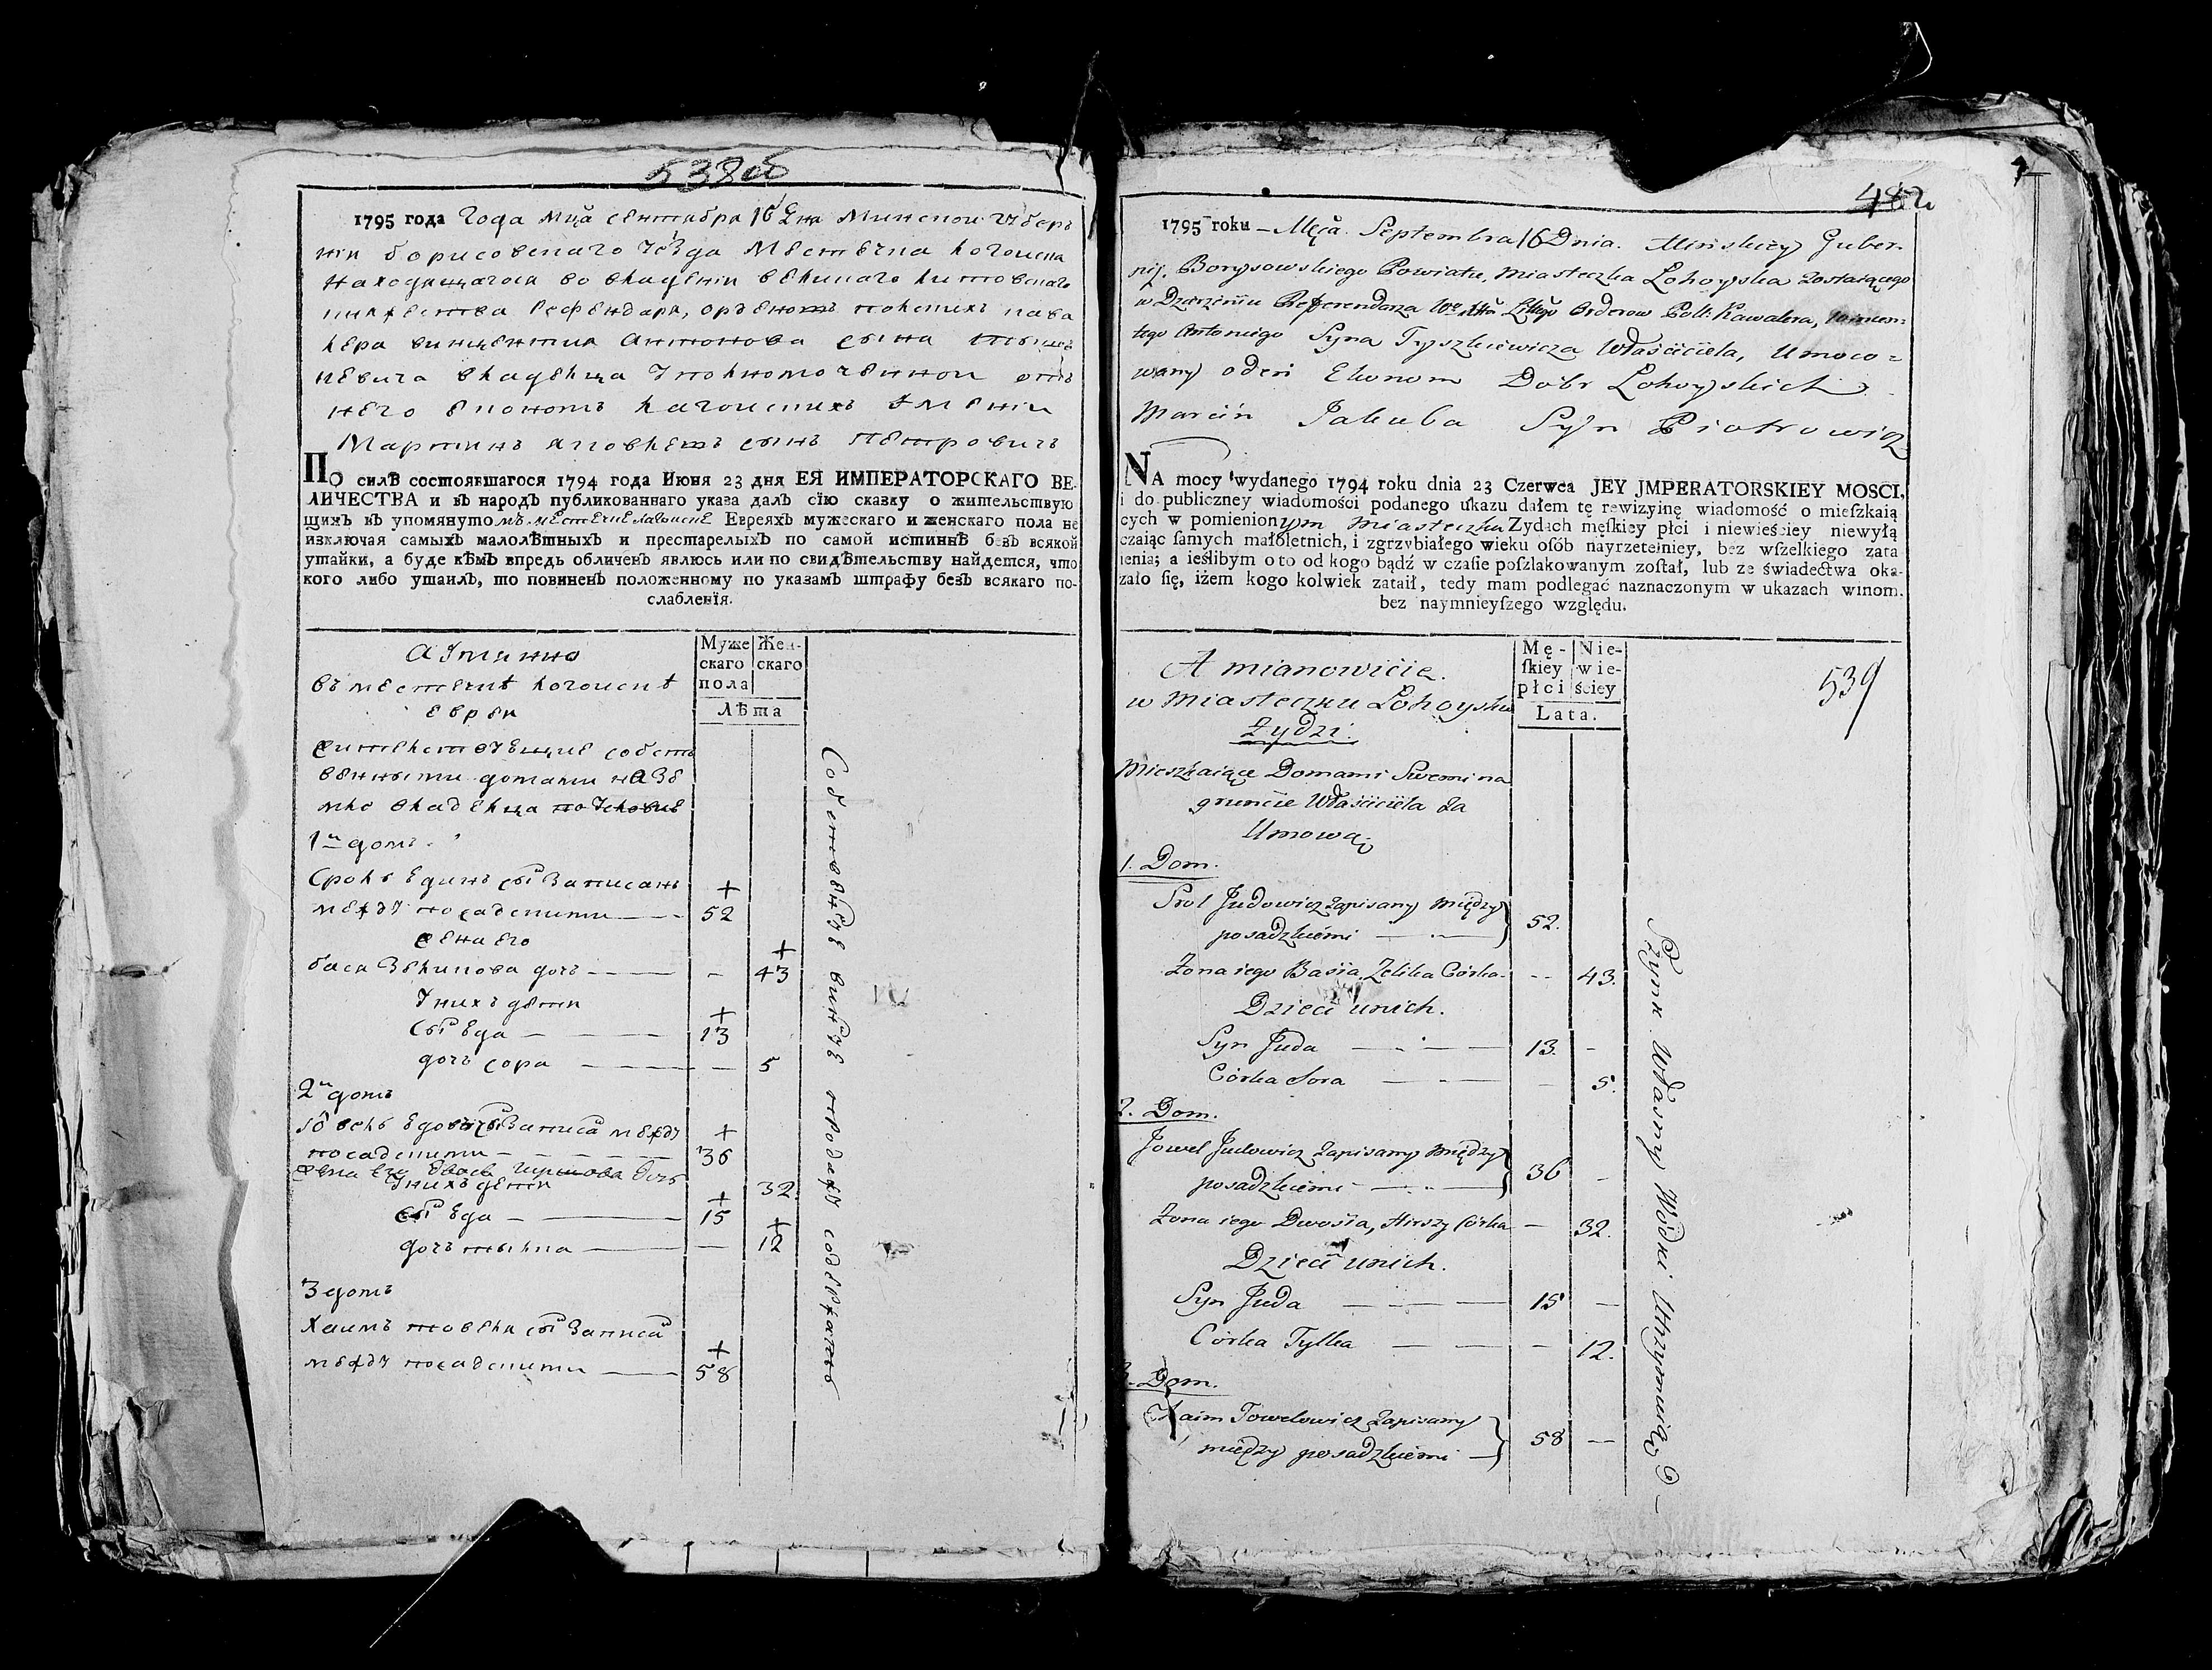 538об
1795 года Года мца сентября 16 дня Минской губер
нiи борисовскаго уезда Местечка логойска
находящагося во владенiи великаго литовскаго
княжества референдаря, орденовъ полскихъ кава
лера винцентия Антонова сына тышке
невича владелца уполномоченной отъ
него економъ лагойскихъ имении
Мартинъ яковлевъ сынъ петровичъ
ПО силѣ состоявшагося 1794 года Июня 23 дня ЕЯ ИМПЕРАТОРСКАГО ВЕ-
ЛИЧЕСТВА и въ народъ публикованнаго указа далъ сїю сказку о жительствую
щихъ въ упомянутомъ местечке лагойске Евреяхъ мужескаго и женскаго пола не
изключая самыхъ малолѣтныхъ и престарелыхъ по самой истиннѣ безъ всякой
утайки, а буде кѣмъ впредь обличенъ явлюсь или по свидѣтельству найдется, что
кого либо утаилъ, то повиненъ положенному по указамъ штрафу безъ всякаго по-
слабленїя.
Муже Жен-
скаго скаго
пола
Лѣта
а имянно
въ местечкѣ логойскѣ
евреи
жителствующие собст
венными домами на зе
мле владелца по условiе
1й домъ
Сроль Юдинъ сын записанъ
между посадскими 52
жена его
баса Зеликова дочь 43
у нихъ дети
сын Юда 13
дочь сора 5
2й домъ
между
посадскими 36
жена его двося гиршова дочь
у нихъ дети 32
сын Юда 15
дочь тылка 12
3 домъ
Хаимъ товели сын записан
между посадскими 58
Собственное винное продажу содержатъ
482
1795 roku Męca Septembra 16 Dnia. Mińskiey Guber-
nij, Borysowskiego Powiatu, Miasteczka Lohoyska zostaiącego
w Dzierżeniu Referendarza Wo Xtta Littgo Orderow Polł: Kawalera, Wincen-
tego Antoniego Syna Tyszkiewicza Właściciela, Umoco=
wany odeń Ekonom Dobr Lohoyskich
Marcin Jakuba Syn Piotrowicz
NA mocy wydanego 1794 roku dnia 23 Czerwca JEY JMPERATORSKIEY MOSCI,
i do publiczney wiadomości podanego ukazu dałem tę rewizyinę wiadomość o mieſzkaią
cych w pomienionym Miasteczku Zydach męſkiey płci i niewieſciey niewyłą
czaiąc ſamych małoletnich, i zgrzybiałego wieku oſób nayrzetelniey, bez wſzelkiego zata
ienia; a ieślibym o to od kogo bądź w czaſie poſzlakowanym zoſtał, lub ze świadectwa oka-
zało ſię, iżem kogo kolwiek zataił, tedy mam podlegać naznaczonym w ukazach winom.
bez naymnieyſzego względu.
Mę- Nie-
ſkiey wie-
płci ściey
Lata.
539
A mianowicie.
w Miasteczku Lohoysku
Żydzi.
Mieszkaiące Domami Swemi na
gruncie Właściciela za
Umową
1. Dom.
Srol Judowicz zapisany między
posadzkiémi 52.
Żona iego Basia Zelika Córka 43.
Dzieci u nich.
Syn Juda 13.
Córka Sora 5.
2. Dom.
Jowel Judowicz zapisany między
posadzkiémi 36
Żona iego Dwosia, Hirszy Córka 32.
Dzieci u nich.
Syn Juda 15
Córka Tylka 12.
3. Dom.
Chaim Towelowicz zapisany
między posadzkiémi 58
Szynk Własny Wódki Utrzymuią